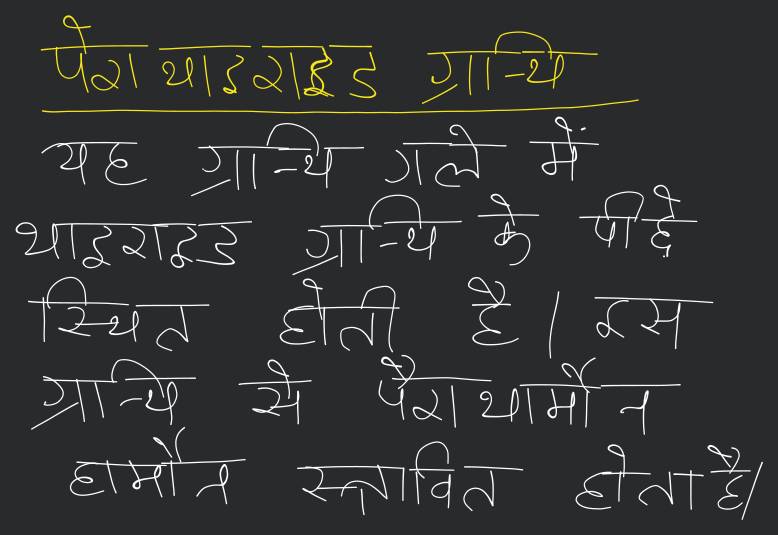 पैराथाइराइड ग्रन्थि
यह ग्रन्थि गले में
थाइराइड ग्रन्थि के पीछे
स्थित होती है। इस
ग्रन्थि से पैराथार्मोन
हार्मोन स्त्रावित होता है।